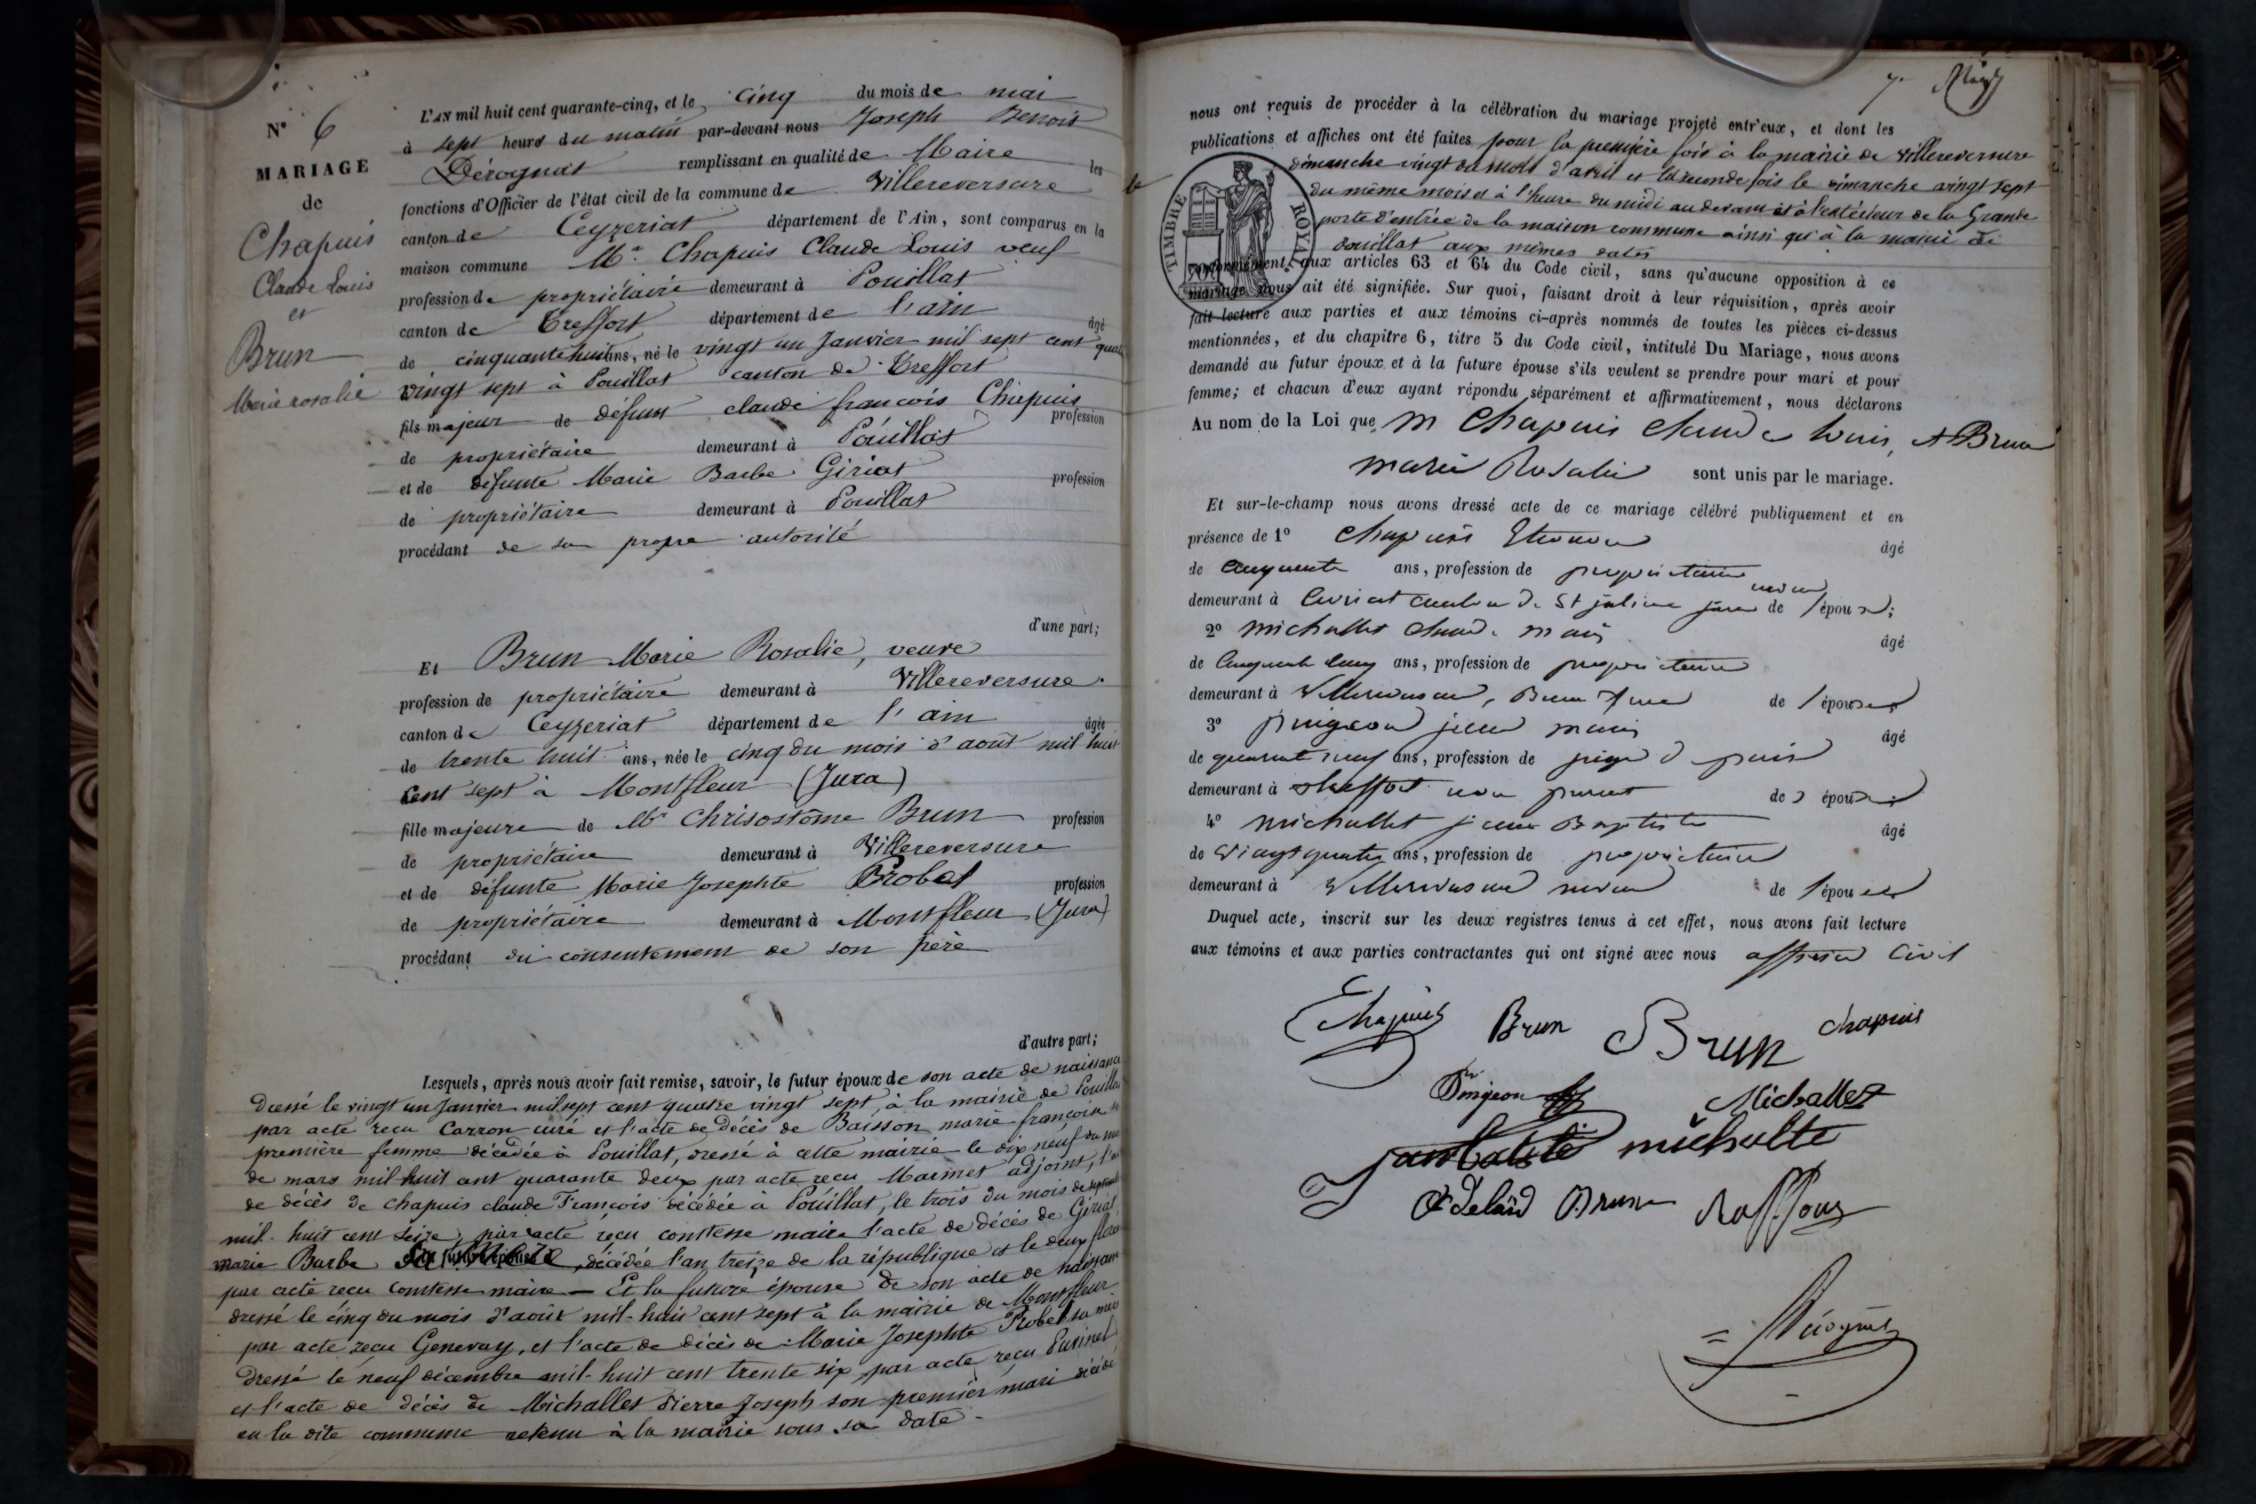 N° 6
MARIAGE
de
Chapuis
Claude Louis
et
Brun
Marie rosalie
L'AN mil huit cent quarante-cinq, et le cinq du mois de mai
à sept heures du matin par-devant nous Joseph Benoit
Dérognat remplissant en qualité de Maire les
fonctions d'Officier de l'état civil de la commune de Villereversure
canton de Ceyzeriat département de l'Ain, sont comparus en la
maison commune Mr. Chapuis Claude Louis veuf
profession de propriétaire demeurant à Pouillat
canton de Treffort département de l'ain âgé
de cinquante huit ans, né le vingt un Janvier mil sept cent quatre
vingt sept à Pouillat canton de Treffort
fils majeur de défunt claude françois Chapuis profession
de propriétaire demeurant à Pouillat
et de défunte Marie Barbe Giriat profession
de propriétaire demeurant à Pouillat
procédant de sa propre autorité
d'une part;
Et Brun Marie Rosalie, veuve
profession de propriétaire demeurant à Villereversure.
canton de Ceyzeriat département de l'ain âgée
de trente huit ans, née le cinq du mois d'août mil huit
cent sept à Montfleur (Jura)
fille majeure de Mr Chrisostôme Brun profession
de propriétaire demeurant à Villereversure
et de défunte Marie Josephte Probet profession
de propriétaire demeurant à Montfleur (Jura)
procédant du consentement de son père
d'autre part;
Lesquels, après nous avoir fait remise, savoir, le futur époux de son acte de naissance
dressé le vingt un Janvier mil sept cent quatre vingt sept, à la mairie de Pouillat
par acte reçu Carron curé et l'acte de décès de Baisson marie françoise sa
première femme décédée à Pouillat, dressé à cette mairie le dix neuf du mois
de mars mil huit cent quarante deux par acte reçu Marmet adjoint, l'acte
de décès de chapuis claude François décédée à Pouillat, le trois du mois de septembre
mil-huit cent seize, par acte reçu comtesse maire l'acte de décès de Giriat
marie Barbe sa mère, décédée l'an treize de la république et le deux floréal
par acte reçu comtesse maire — Et la future épouse de son acte de naissance
dressé le cinq du mois d'août mil-huit cent sept à la mairie de Montfleur
par acte reçu Genevay, et l'acte de décès de Marie Josephte Probet sa mère
dressé le neuf décembre mil-huit cent trente six, par acte reçu
et l'acte de décès de Michallet Pierre Joseph son premier mari décédé
en la dite commune retenu à la mairie sous sa date -
nous ont requis de procéder à la célébration du mariage projeté entr'eux, et dont les
publications et affiches ont été faites pour la première fois à la mairie de Villereversure le
dimanche vingt du mois d'avril et la seconde fois le dimanche vingt sept
du même mois et à l'heure du midi au devant et à l'extérieur de la Grande
porte d'entrée de la maison commune ainsi qu'à la mairie de
Pouillat aux mêmes dates
TIMBRE ROYAL
conformément aux articles 63 et 64 du Code civil, sans qu'aucune opposition à ce
mariage nous ait été signifiée. Sur quoi, faisant droit à leur réquisition, après avoir
fait lecture aux parties et aux témoins ci-après nommés de toutes les pièces ci-dessus
mentionnées, et du chapitre 6, titre 5 du Code civil, intitulé Du Mariage, nous avons
demandé au futur époux et à la future épouse s'ils veulent se prendre pour mari et pour
femme; et chacun d'eux ayant répondu séparément et affirmativement, nous déclarons
Au nom de la Loi que M Chapuis Claude Louis, et Brun
marie Rosalie sont unis par le mariage.
Et sur-le-champ nous avons dressé acte de ce mariage célébré publiquement et en
présence de 1° Chapuis Etienne âgé
de cinquante ans, profession de propriétaire
demeurant à canton de St julien jura de l'époux;
2° michallet Claude marie âgé
de Cinquante cinq ans, profession de propriétaire
demeurant à Villereversure, Beau frère de l'épouse
3° pingeon jean marie âgé
de quarante neuf ans, profession de juge de paix
demeurant à treffort non parent des époux
4° michallet jean Baptiste âgé
de vingt quatre ans, profession de propriétaire
demeurant à Villereversure neveu de l'épouse
Duquel acte, inscrit sur les deux registres tenus à cet effet, nous avons fait lecture
aux témoins et aux parties contractantes qui ont signé avec nous officier Civil
Chapuis Brun Brun chapuis
Pingeon Michallet
Jambatiste michalte
Adelaïd Brun
Dérognat